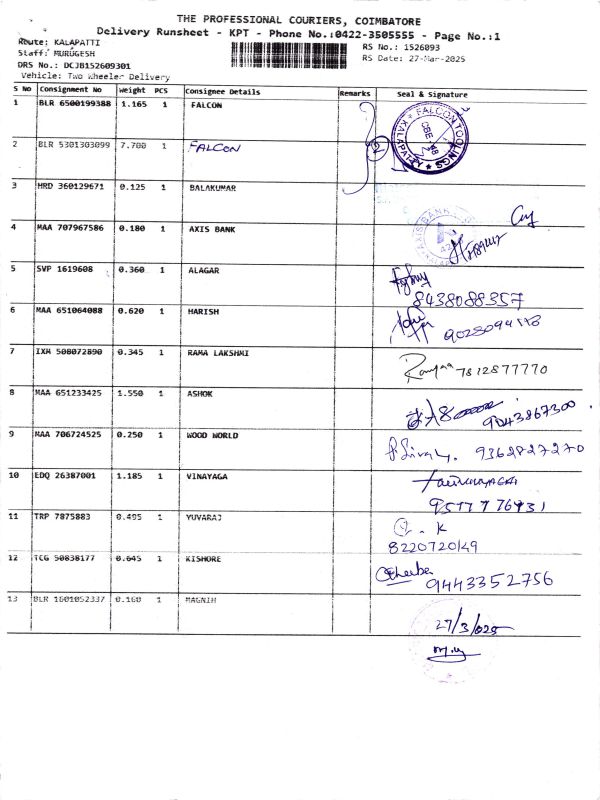 THE PROFESSIONAL COURIERS, COIMBATORE
Delivery Runsheet - KPT - Phone No.:0422-3505555 - Page No.:1
Route: KALAPATTI
Staff: MURUGESH
DRS No: DCJB152609301
Vehicle: Two Wheeler Delivery
RS No.: 1526093
RS Date: 27-Mar-2025
S No Consignment No Weight PCS Consignee Details Remarks Seal & Signature
1 BLR 6500199388 1.165 1 FALCON
FALCON TOOLINGS
KALAPATTY
2 BLR 5301303099 7.700 1 FALCON 2
3 HRD 360129671 0.125 1 BALAKUMAR
4 MAA 707967586 0.180 1 AXIS BANK
AXIS BANK
5 SVP 1619608 0.360 1 ALAGAR
8438088357
6 MAA 651064088 0.620 1 HARISH
7 IXM 508072890 0.345 1 RAMA LAKSHMI
7812877770
8 MAA 651233425 1.550 1 ASHOK
9043867300
9 MAA 706724525 0.250 1 WOOD WORLD
9362827270
10 EDQ 26387001 1.185 1 VINAYAGA
11 TRP 7875883 0.495 1 YUVARAJ
K
8220720149
12 TCG 50838177 0.645 1 KISHORE
9443352756
13 BLR 1601052337 0.160 1 MAGNIH
27/3/025